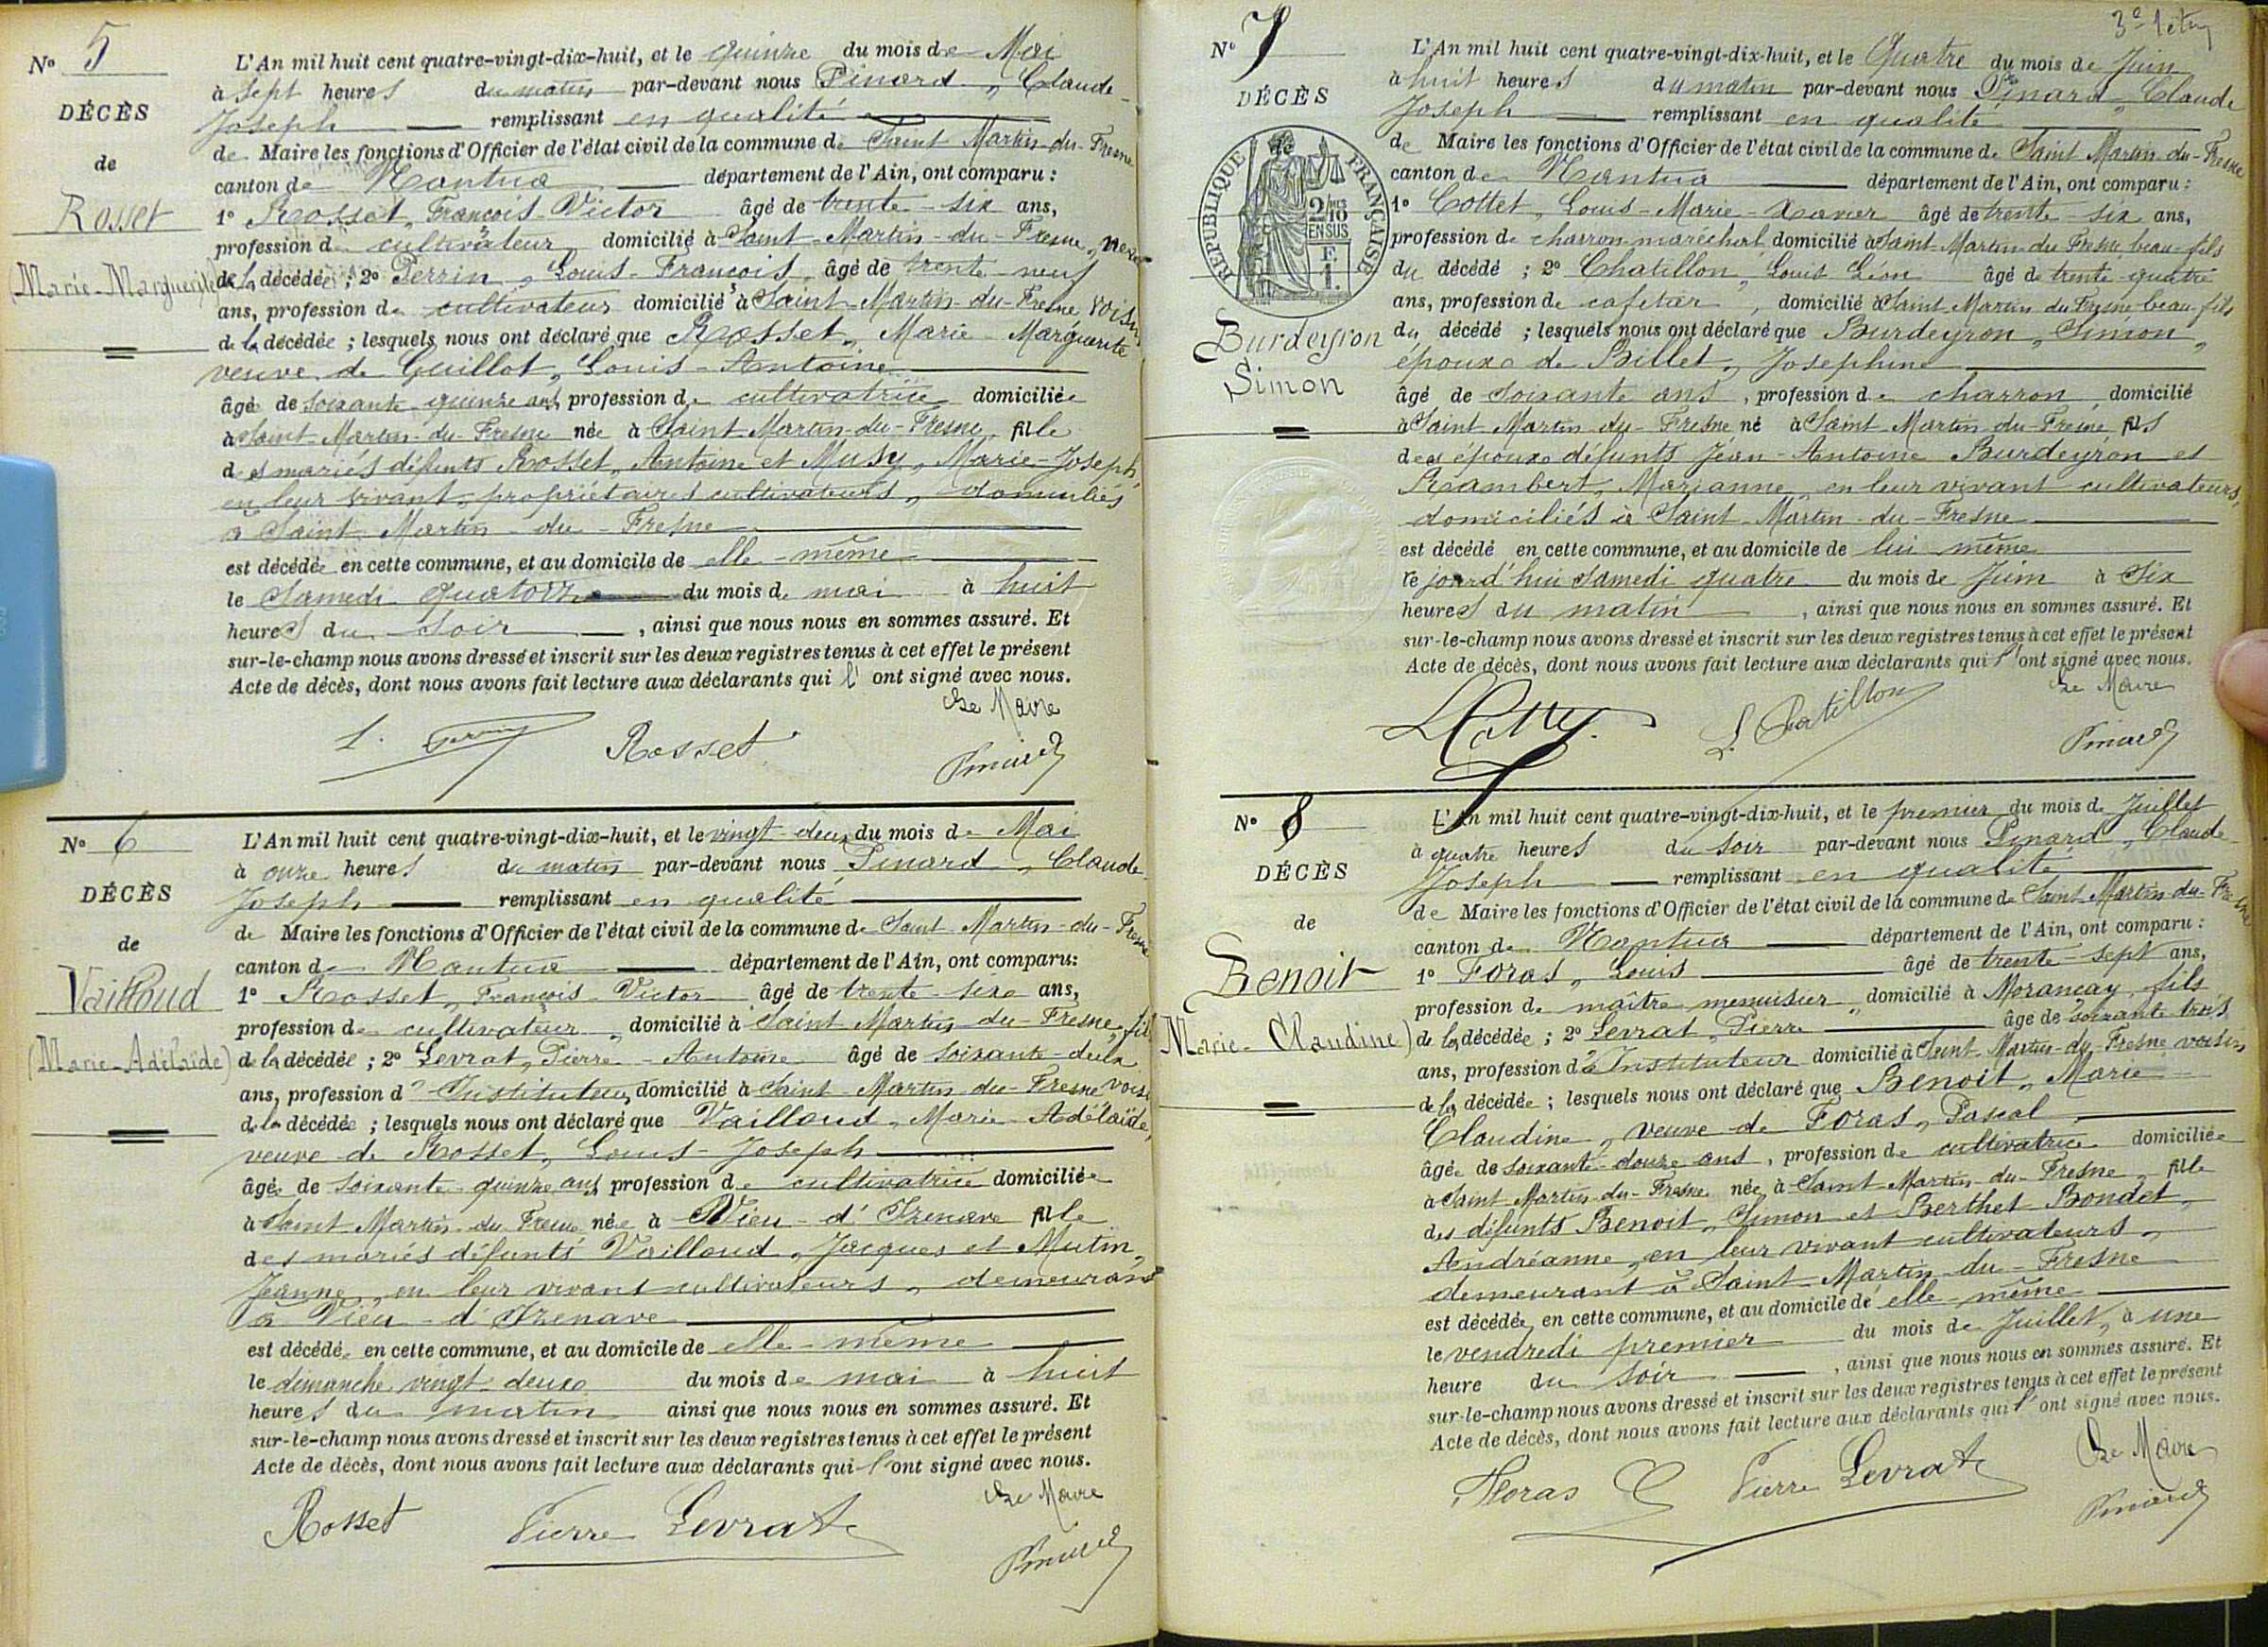 N° 5
DÉCÈS
de
Rosset
(Marie-Marguerite)
L'An mil huit cent quatre-vingt-dix-huit, et le quinze du mois de Mai
à sept heures du matin par-devant nous Pinard, Claude-
Joseph remplissant en qualité
de Maire les fonctions d'Officier de l'état civil de la commune de Saint Martin-du-Fresne
canton de Nantua département de l'Ain, ont comparu :
1° Rosset, François-Victor âgé de trente-six ans,
profession de cultivateur, domicilié à Saint-Martin-du-Fresne, neveu
de la décédée ; 2° Perrin, Louis-François, âgé de trente-neuf
ans, profession de cultivateur domicilié à Saint-Martin-du-Fresne voisin
de la décédée ; lesquels nous ont déclaré que Rosset, Marie-Marguerite
veuve de Guillot, Louis-Antoine
âgée de soixante-quinze ans, profession de cultivatrice domiciliée
à Saint-Martin-du-Fresne née à Saint Martin-du-Fresne, fille
des mariés défunts Rosset, Antoine et Musy, Marie-Joseph,
en leur vivant, propriétaires cultivateurs, domiciliés
à Saint-Martin-du-Fresne
est décédée en cette commune, et au domicile de elle-même
le Samedi quatorze du mois de mai à huit
heures du soir, ainsi que nous nous en sommes assuré. Et
sur-le-champ nous avons dressé et inscrit sur les deux registres tenus à cet effet le présent
Acte de décès, dont nous avons fait lecture aux déclarants qui l'ont signé avec nous.
Le Maire
L. Perrin Rosset Pinard
N° 6
DÉCÈS
de
Vailloud
(Marie-Adélaïde)
L'An mil huit cent quatre-vingt-dix-huit, et le vingt-deux du mois de Mai
à onze heures du matin par-devant nous Pinard, Claude
Joseph remplissant en qualité
de Maire les fonctions d'Officier de l'état civil de la commune de Saint Martin-du-Fresne
canton de Nantua département de l'Ain, ont comparu:
1° Rosset, François-Victor âgé de trente-six ans,
profession de cultivateur, domicilié à Saint Martin-du-Fresne, fils
de la décédée ; 2° Levrat, Pierre-Antoine âgé de soixante-deux
ans, profession d'Instituteur, domicilié à Saint-Martin-du-Fresne voisin
de la décédée ; lesquels nous ont déclaré que Vailloud, Marie-Adélaïde,
veuve de Rosset, Louis-Joseph
âgée de soixante-quinze ans, profession de cultivatrice domiciliée
à Saint Martin-du-Fresne née à Vieu-d'Izenave fille
des mariés défunts Vailloud, Jacques et Mutin,
Jeanne, en leur vivant cultivateurs, demeurant
à Vieu-d'Izenave
est décédée en cette commune, et au domicile de elle-même
le dimanche vingt-deux du mois de mai à huit
heures du matin ainsi que nous nous en sommes assuré. Et
sur-le-champ nous avons dressé et inscrit sur les deux registres tenus à cet effet le présent
Acte de décès, dont nous avons fait lecture aux déclarants qui l'ont signé avec nous.
Le Maire
Rosset Pierre Levrat Pinard
N° 7
DÉCÈS
RÉPUBLIQUE FRANÇAISE
2/10 EN SUS
Burdeyron
Simon
L'An mil huit cent quatre-vingt-dix-huit, et le Quatre du mois de Juin
à huit heures du matin par-devant nous Pinard, Claude
Joseph remplissant en qualité
de Maire les fonctions d'Officier de l'état civil de la commune de Saint Martin-du-Fresne
canton de Nantua département de l'Ain, ont comparu :
1° Cottet, Louis-Marie-Xavier âgé de trente-six ans,
profession de charron-maréchal, domicilié à Saint-Martin-du-Fresne, beau-fils
du décédé ; 2° Chatillon, Louis Léon âgé de trente-quatre
ans, profession de cafetier, domicilié à Saint Martin du Fresne beau-fils
du décédé ; lesquels nous ont déclaré que Burdeyron, Simon,
époux de Billet, Josephine
âgé de soixante ans, profession de charron, domicilié
à Saint Martin-du-Fresne né à Saint Martin-du-Fresne, fils
des époux défunts Jean-Antoine Burdeyron et
Rambert, Marianne, en leur vivant cultivateurs,
domiciliés à Saint-Martin-du-Fresne
est décédé en cette commune, et au domicile de lui même
le jourd'hui samedi quatre du mois de Juin à six
heures du matin, ainsi que nous nous en sommes assuré. Et
sur-le-champ nous avons dressé et inscrit sur les deux registres tenus à cet effet le présent
Acte de décès, dont nous avons fait lecture aux déclarants qui l'ont signé avec nous.
Le Maire
L. Chatillon Pinard
N° 8
DÉCÈS
de
Benoit
Marie-Claudine)
L'An mil huit cent quatre-vingt-dix-huit, et le premier du mois de Juillet
à quatre heures du soir par-devant nous Pinard, Claude-
Joseph remplissant en qualité
de Maire les fonctions d'Officier de l'état civil de la commune de Saint Martin-du-Fresne
canton de Nantua département de l'Ain, ont comparu :
1° Foras, Louis âgé de trente-sept ans,
profession de maître menuisier, domicilié à Morancay, fils
de la décédée ; 2° Levrat, Pierre âgé de soixante-trois
ans, profession d'Instituteur domicilié à Saint-Martin-du-Fresne voisin
de la décédée ; lesquels nous ont déclaré que Benoit, Marie-
Claudine, veuve de Foras, Pascal
âgée de soixante-douze ans, profession de cultivatrice domiciliée
à Saint Martin-du-Fresne née à Saint Martin-du-Fresne, fille
des défunts Benoit, Simon et Berthet-Bondet,
Andréanne, en leur vivant cultivateurs,
demeurant à Saint-Martin-du-Fresne
est décédée, en cette commune, et au domicile de elle-même
le vendredi premier du mois de Juillet, à une
heure du soir, ainsi que nous nous en sommes assuré. Et
sur-le-champ nous avons dressé et inscrit sur les deux registres tenus à cet effet le présent
Acte de décès, dont nous avons fait lecture aux déclarants qui l'ont signé avec nous.
Le Maire
Floras Pierre Levrat Pinard